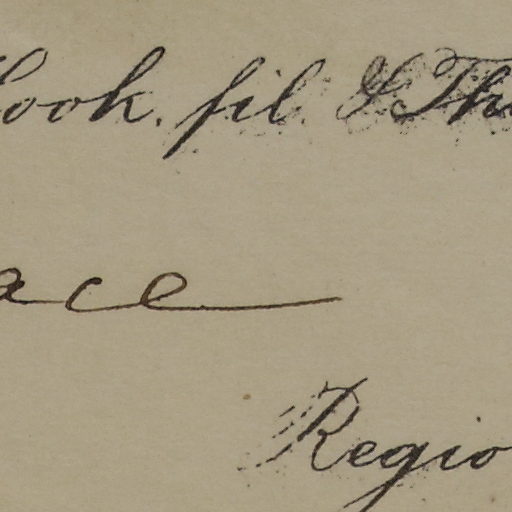 Hook. fil. & Th
ace
Regio